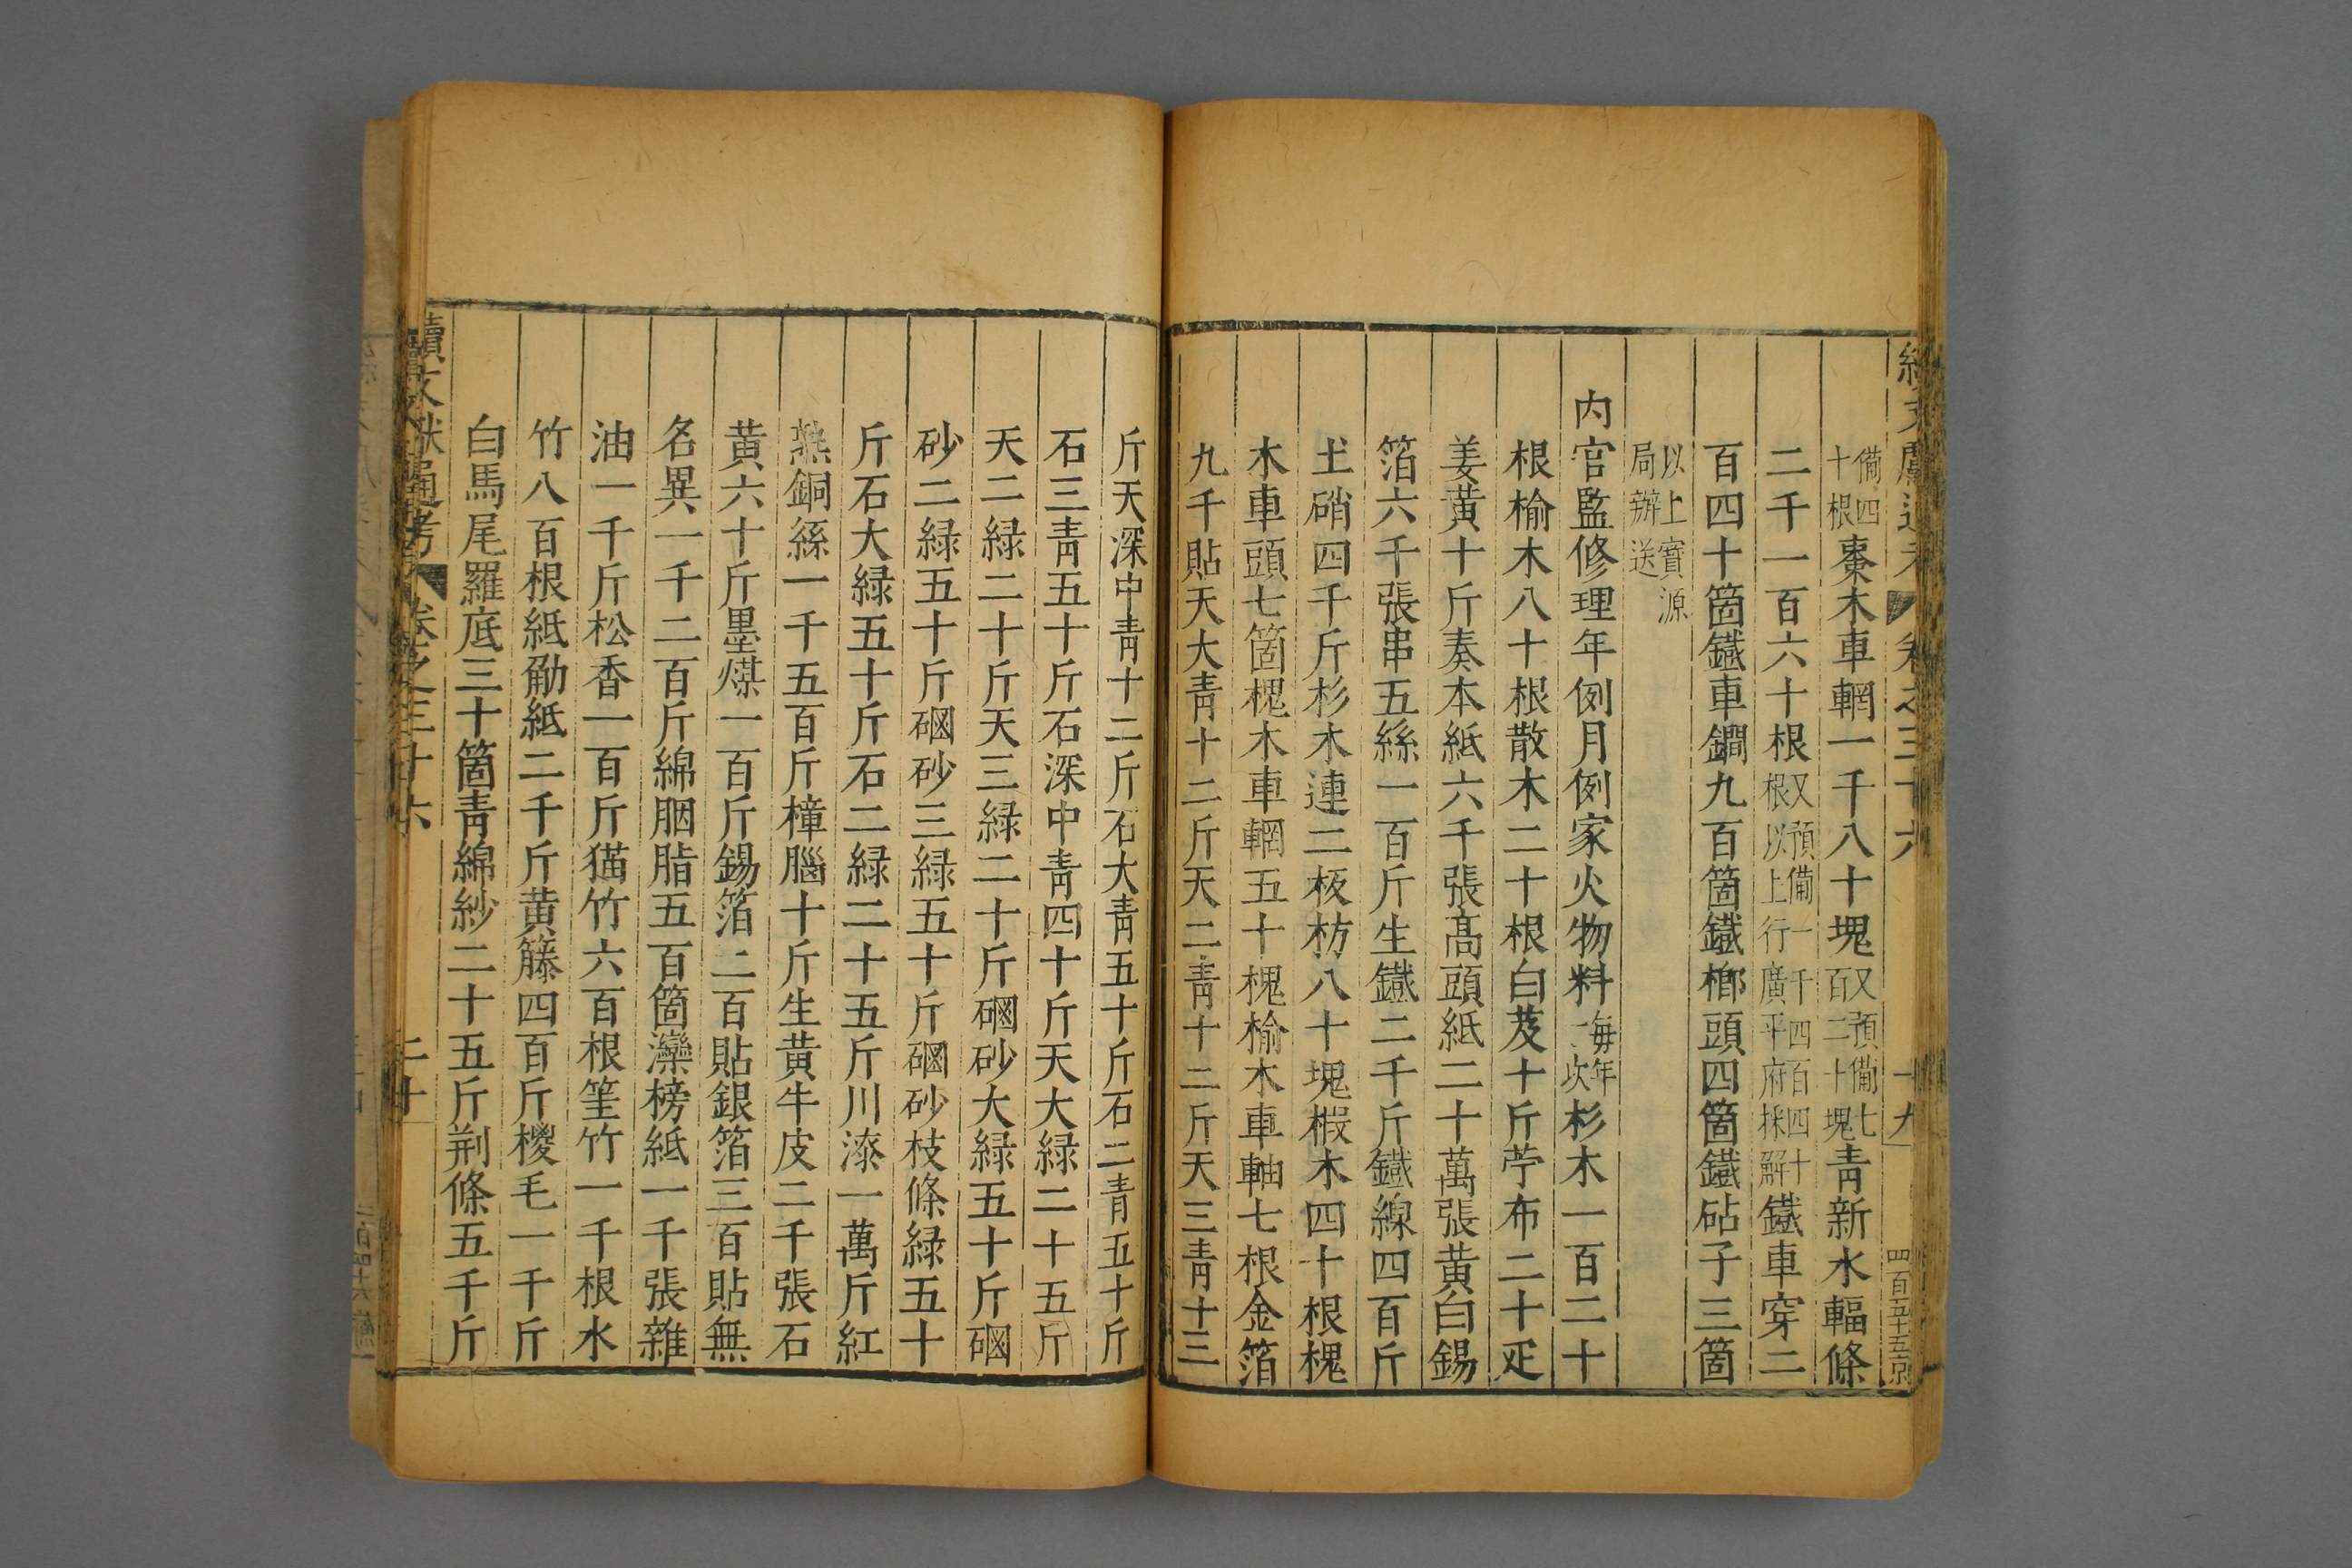 續文獻通考 卷之三十六 十九 四百五十五 京
備四十根棗木車輞一千八十塊又預備七百二十塊青新水輻條
二千一百六十根又預備一千四百四十根以上行廣平府採解鐵車穿二
百四十箇鐵車鐧九百箇鐵榔頭四箇鐵砧子三箇
以上寶源局辦送
内官監修理年例月例家火物料每年一次杉木一百二十
根榆木八十根散木二十根白芨十斤苧布二十疋
姜黃十斤奏本紙六千張高頭紙二十萬張黃白錫
箔六千張串五絲一百斤生鐵二千斤鐵線四百斤
土硝四千斤杉木連二板枋八十塊椵木四十根槐
木車頭七箇槐木車輞五十槐榆木車軸七根金箔
九千貼天大青十二斤天二青十二斤天三青十三
斤天深中青十二斤石大青五十斤石二青五十斤
石三青五十斤石深中青四十斤天大緑二十五斤
天二緑二十斤天三緑二十斤硇砂大緑五十斤硇
砂二緑五十斤硇砂三緑五十斤硇砂枝條緑五十
斤石大緑五十斤石二緑二十五斤川漆一萬斤紅
熟銅絲一千五百斤樟腦十斤生黃牛皮二千張石
黃六十斤墨煤一百斤錫箔二百貼銀箔三百貼無
名異一千二百斤綿胭脂五百箇灤榜紙一千張雜
油一千斤松香一百斤猫竹六百根筀竹一千根水
竹八百根紙觔紙二千斤黃籐四百斤椶毛一千斤
白馬尾羅底三十箇青綿紗二十五斤荆條五千斤
續文獻通考 卷之三十六 二十